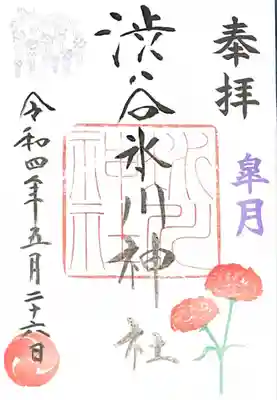 奉拝
皐月
渋谷氷川神社
氷川神社
令和四年五月二十六日